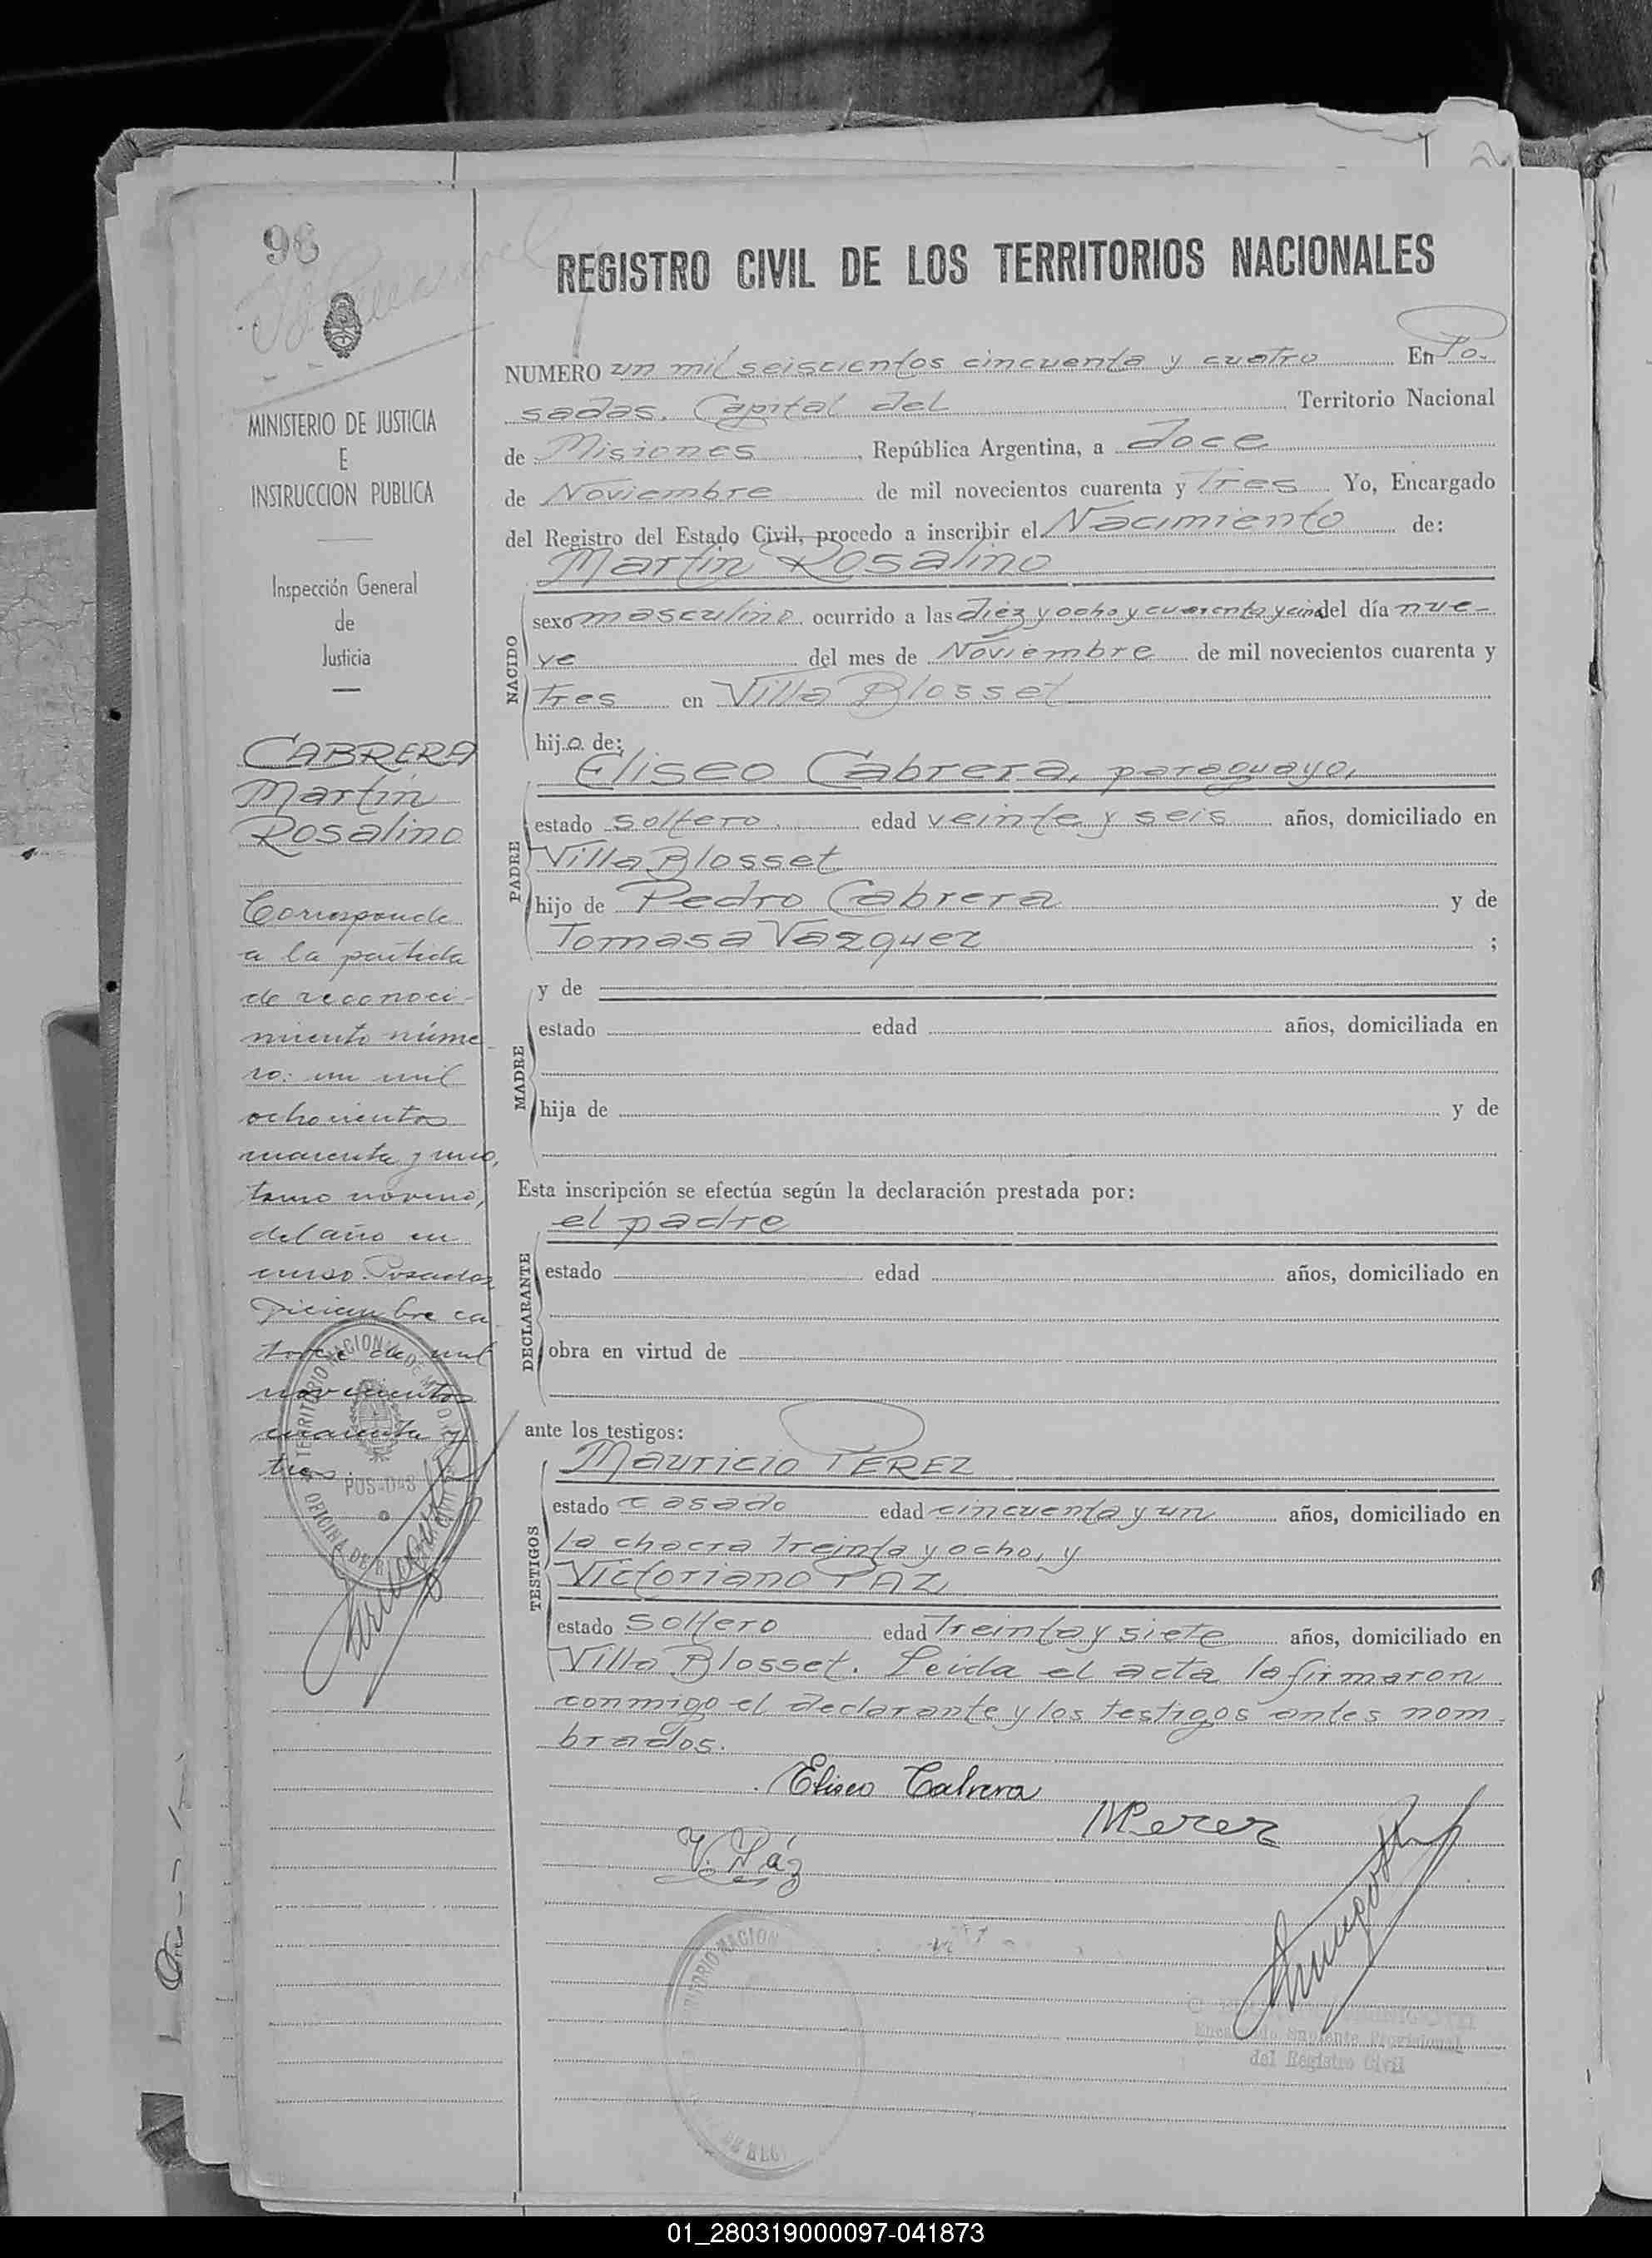 98
MINISTERIO DE JUSTICIA
E
INSTRUCCION PUBLICA
Inspección General
de
Justicia
CABRERA
Martín
Rosalino
Corresponde
a la partida
de reconoci-
miento núme-
ro: un mil
ochocientos
cuarenta y uno,
tomo noveno,
del año en
curso. Posadas
Diciembre ca-
torce de mil
novecientos
cuarenta y
tres.
POSADAS
REGISTRO CIVIL DE LOS TERRITORIOS NACIONALES
NUMERO un mil seiscientos cincuenta y cuatro En Po-
sadas, Capital del Territorio Nacional
de Misiones, República Argentina, a doce
de Noviembre de mil novecientos cuarenta y tres Yo, Encargado
del Registro del Estado Civil, procedo a inscribir el Nacimiento de:
Martín Rosalino
NACIDO
sexo masculino ocurrido a las diez y ocho y cuarenta y cinco del día nue-
ve del mes de Noviembre de mil novecientos cuarenta y
tres en Villa Blosset
hijo de:
Eliseo Cabrera, paraguayo,
PADRE
estado soltero edad veinte y seis años, domiciliado en
Villa Blosset
hijo de Pedro Cabrera y de
Tomasa Vazquez ;
MADRE
y de
estado edad años, domiciliada en
hija de y de
Esta inscripción se efectúa según la declaración prestada por:
el padre
DECLARANTE
estado edad años, domiciliado en
obra en virtud de
ante los testigos:
Mauricio PEREZ
TESTIGOS
estado casado edad cincuenta y un años, domiciliado en
la chacra treinta y ocho, y
Victoriano PAZ
estado soltero edad treinta y siete años, domiciliado en
Villa Blosset. Leida el acta la firmaron
conmigo el declarante y los testigos antes nom-
brados.
Eliseo Cabrera
MPerez
V. Páz
Encargado Suplente Provisional
del Registro Civil
01_280319000097-041873